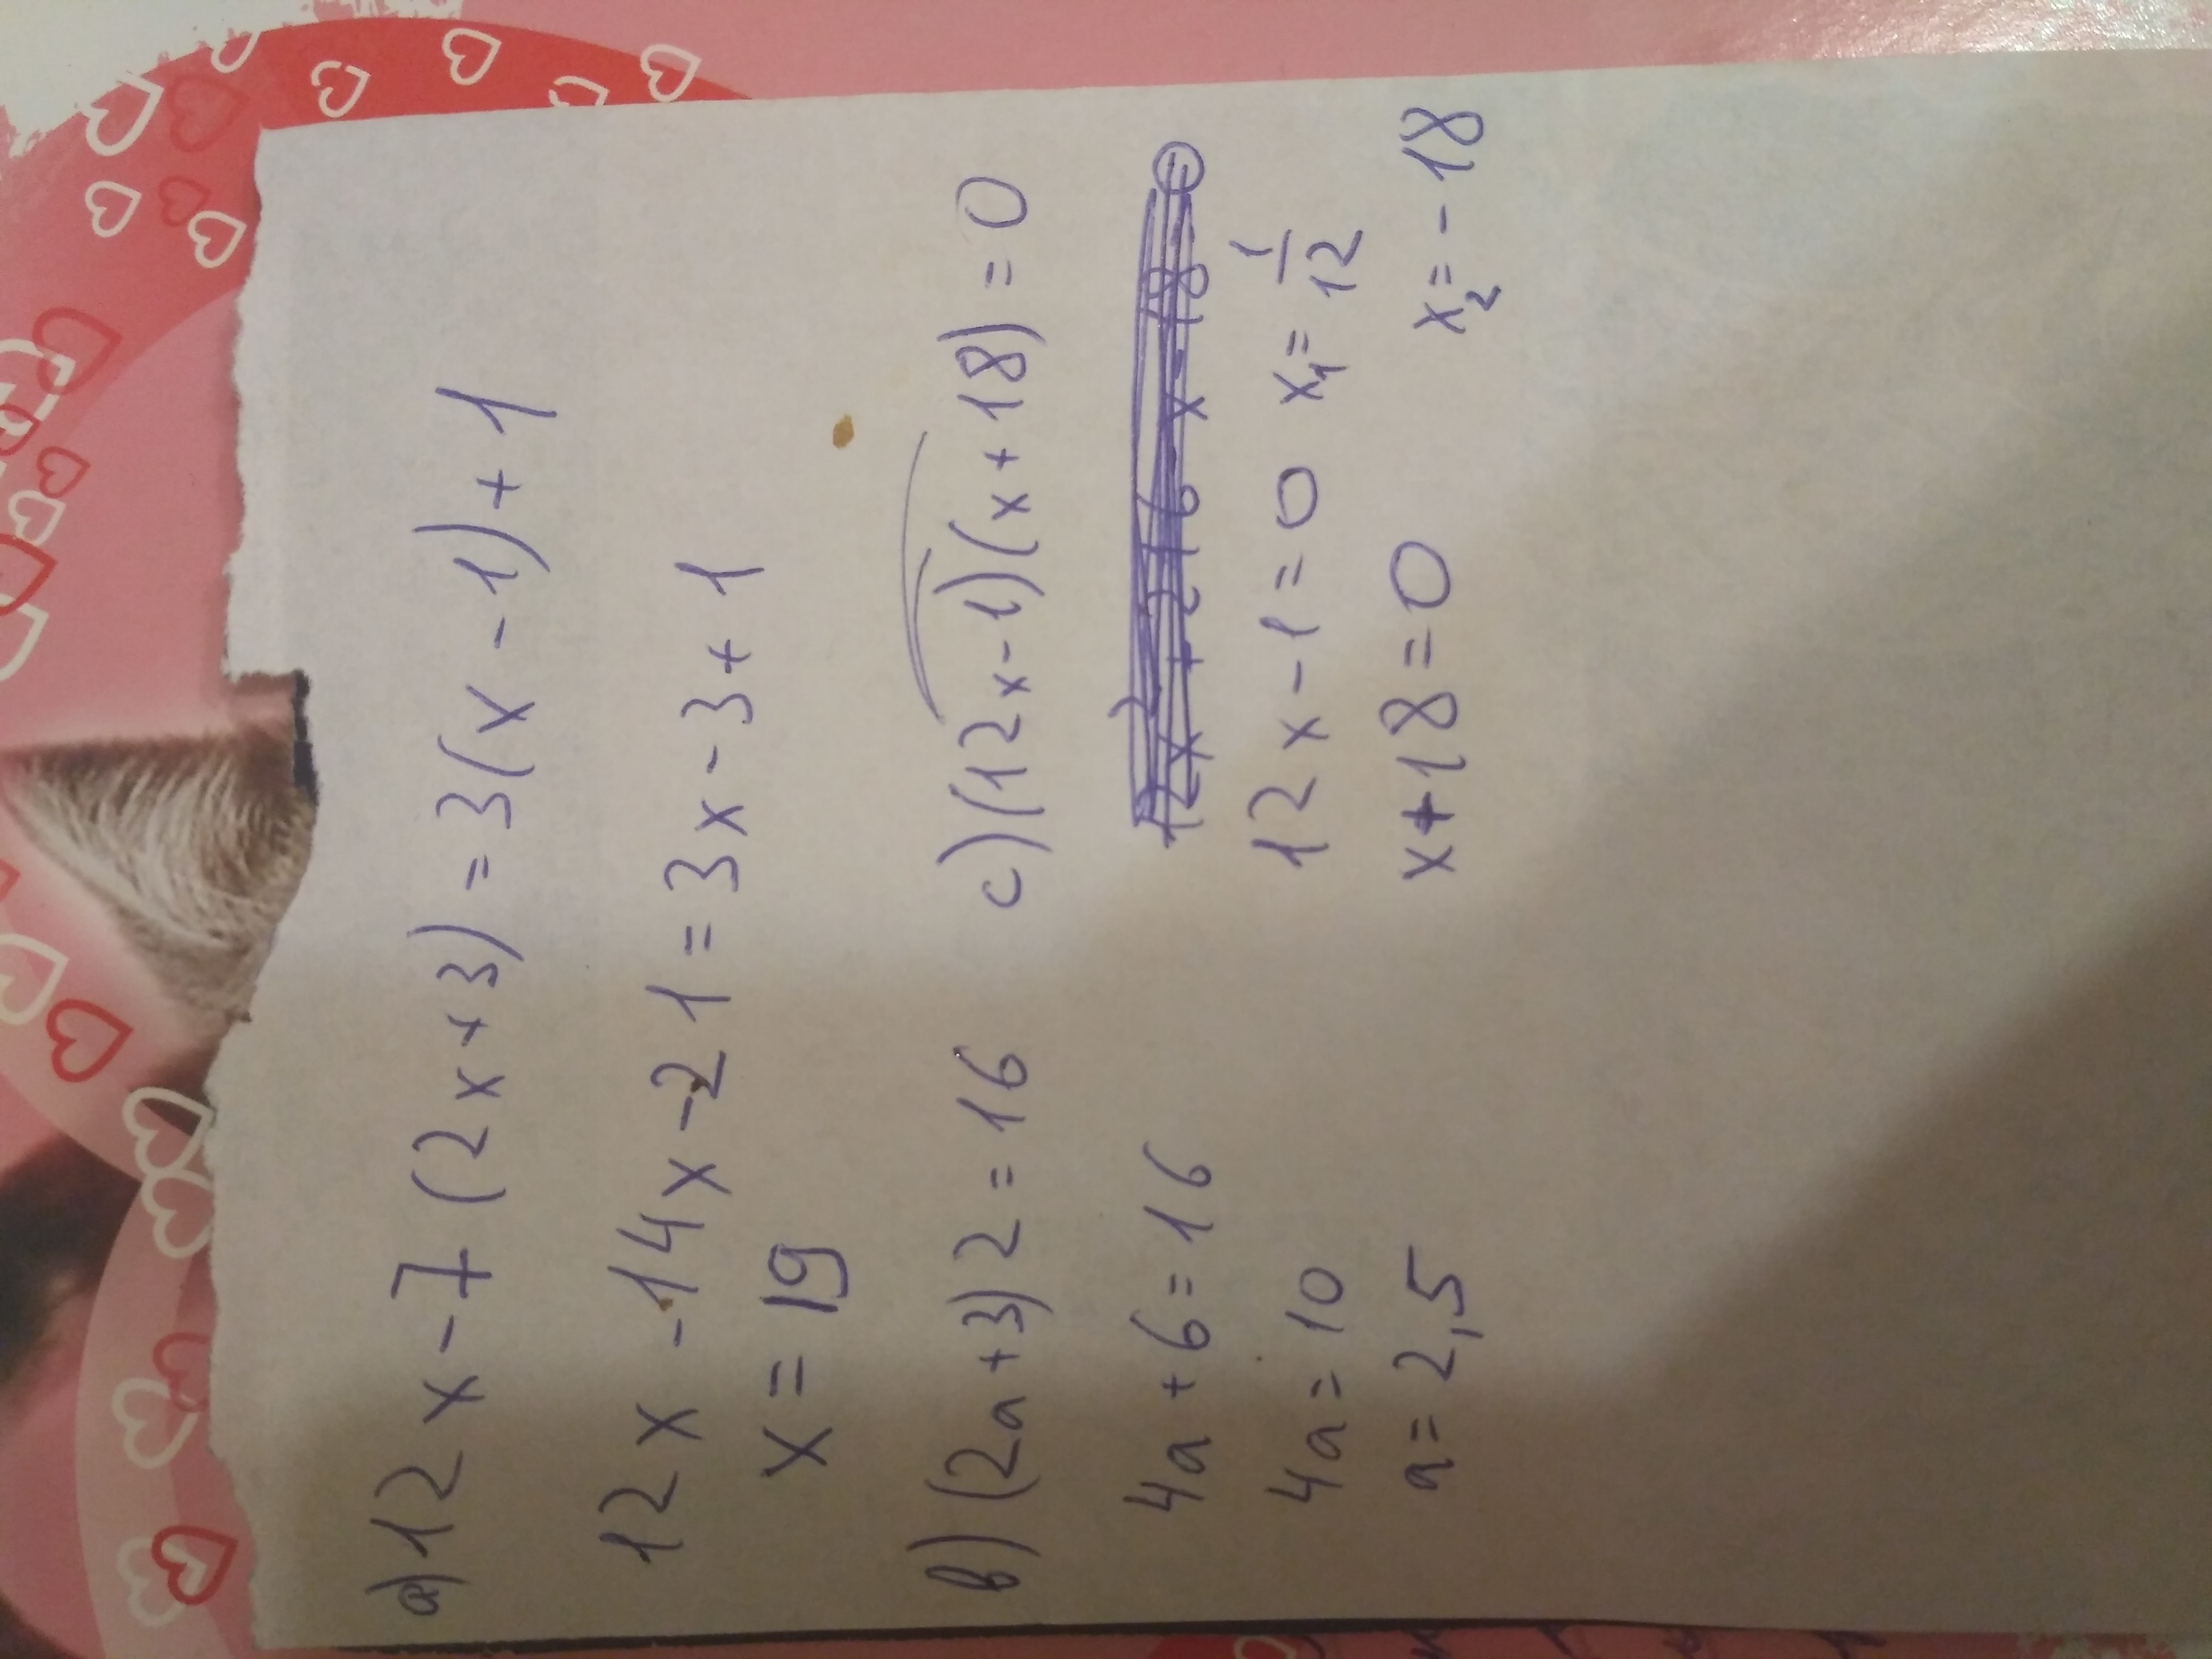 a) 12x-7(2x+3)=3(x-1)+1
12x-14x-21=3x-3+1
x=19
b) (2a+3)2=16
4a+6=16
4a=10
a=2,5
c) (12x-1)(x+18)=0
12x-1=0 x₁=1/12
x+18=0 x₂=-18